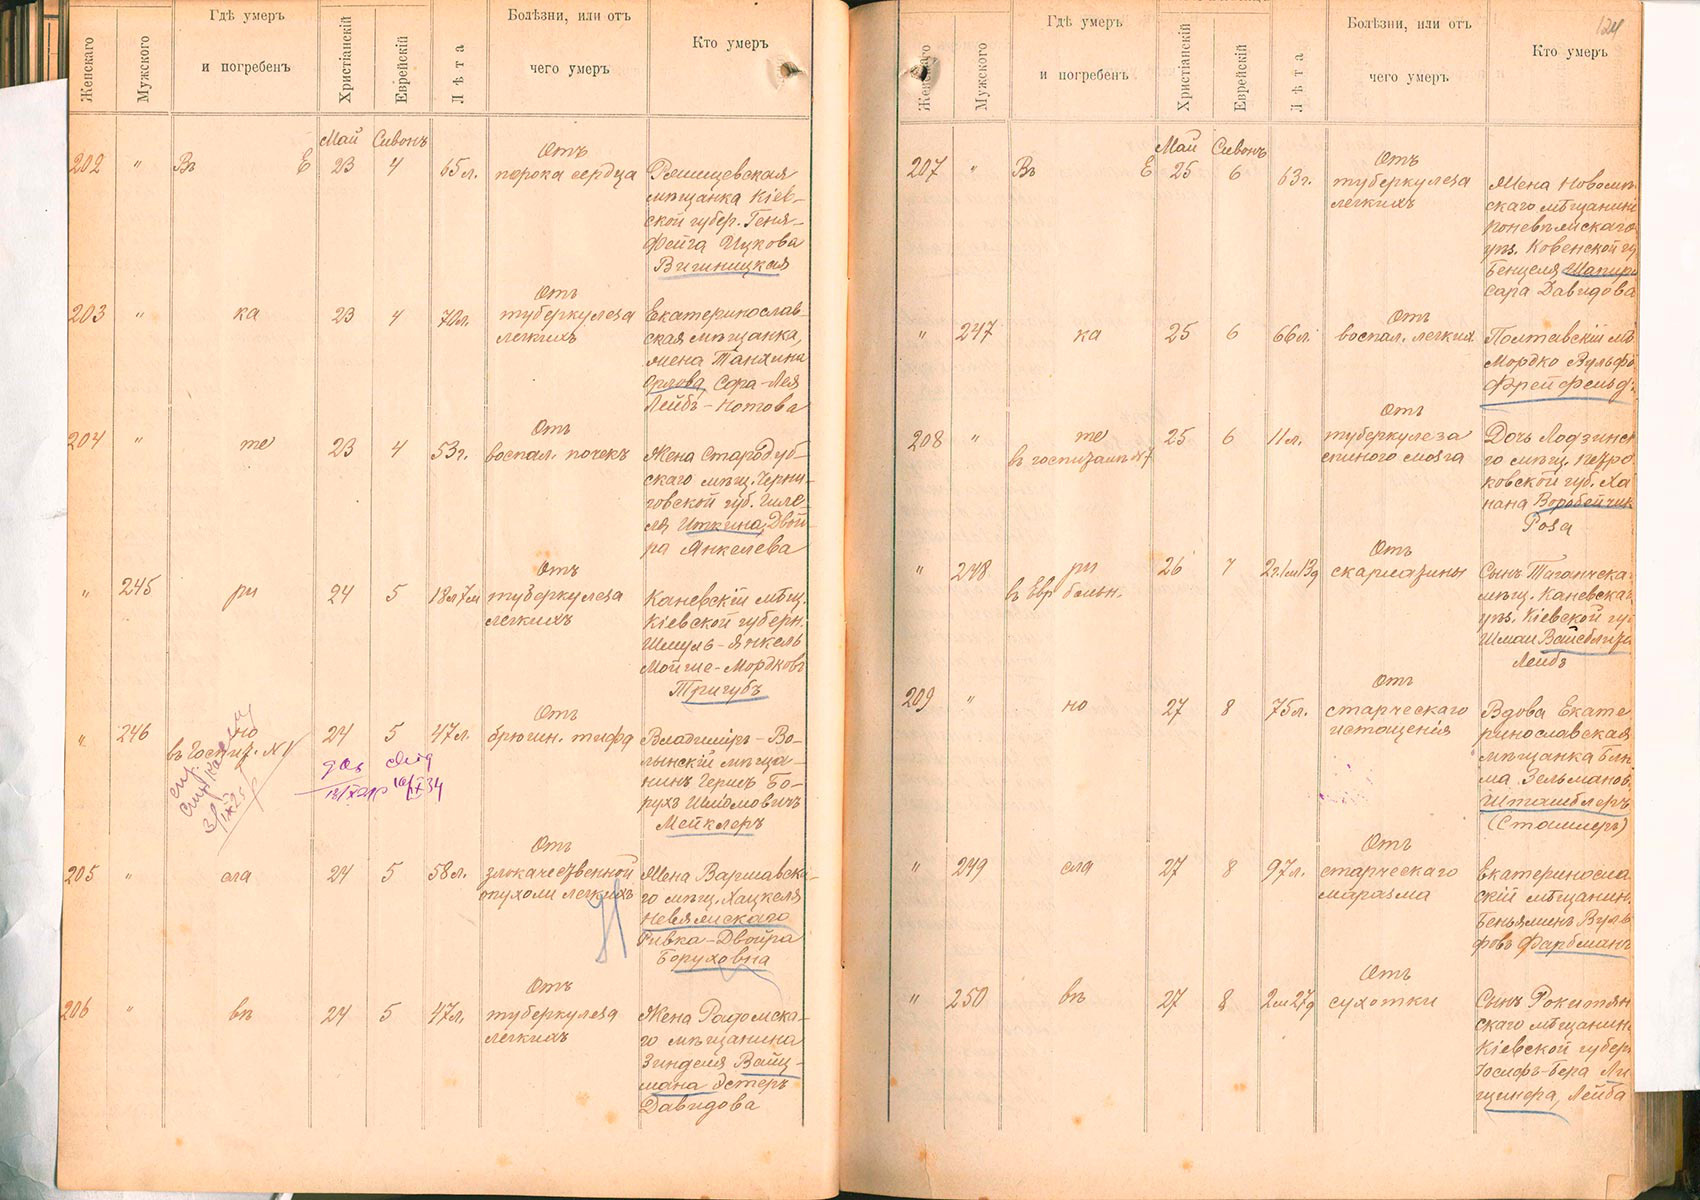 Женскаго
Мужского
Гдѣ умеръ
и погребенъ
Христіанскій
Еврейскій
Лѣта
Болѣзни, или отъ
чего умеръ
Кто умеръ
Май Сивонъ
202 " Въ Е 23 4 65л.
Отъ
порока сердца
Ржищевская
мѣщанка Кіев-
ской губер. Геня-
Фейга Ицкова
Вигиницкая
203 " ка 23 4 70л.
Отъ
туберкулеза
легкихъ
Екатеринослав-
ская мѣщанка,
жена Танхина
Орлова, Сора-Лея
Лейбъ-Нотова
204 " те 23 4 53г.
Отъ
воспал. почекъ
Жена Стародуб-
скаго мѣщ. Черни-
говской губ. Гиле-
ля Иткина, Двой-
ра Янкелева
" 245 ри 24 5 18л7м
Отъ
туберкулеза
легкихъ
Каневскій мѣщ.
Кіевской губерн.
Шмуль-Янкель
Мойше-Мордковъ
Тригубъ
" 246 но 24 5 47л.
въ Госпит. N
Отъ
брюшн. тифа
Владиміръ-Во-
лынскій мѣща-
нинъ Гершъ Бо-
рухъ Шліомовичъ
Мейклеръ
205 " сла 24 5 58л.
Отъ
злокачественной
опухоли легкихъ
Жена Варшавска-
го мѣщ. Хацкеля
Невяжскаго
Ривка-Двойра
Боруховна
206 " въ 24 5 47л.
Отъ
туберкулеза
легкихъ
Жена Радомска-
го мѣщанина
Зинделя Вайц-
мана Эстеръ
Давидова
124
Женскаго
Мужского
Гдѣ умеръ
и погребенъ
Христіанскій
Еврейскій
Лѣта
Болѣзни, или отъ
чего умеръ
Кто умеръ
Май Сивонъ
207 " Въ Е 25 6 63г.
Отъ
туберкулеза
легкихъ
Жена Новомѣ
скаго мѣщанина
Поневѣжскаго
уѣз. Ковенской гу
Бенцеля Шапиро
Сара Давидова
" 247 ка 25 6 66л.
Отъ
воспал. легкихъ
Полтавскій мѣ
Мордко Вульфо
Фрейфельд
208 " те 25 6 11л.
в госпиталѣ №7
Отъ
туберкулеза
спиного мозга
Дочь Лодзинск
го мѣщ. Петро
ковской губ. Ха
нана Воробейчик
Роза
" 248 ри 26 7 2г.1м13д
въ Евр больн.
Отъ
скарлатины
Сынъ Таганческа
мѣщ. Каневска
уѣз. Кіевской гу
Шмаи Вайсблит
Лейбъ
209 " но 27 8 75л.
Отъ
старческаго
истощенія
Вдова Екате
ринославская
мѣщанка Блю
ма Зельманов.
Штамблеръ
(Стомлеръ)
" 249 сла 27 8 97л.
Отъ
старческаго
маразма
Екатеринослав
скій мѣщанин.
Беньяминъ Вуль
фовъ Фарбманъ
" 250 въ 27 8 2м27д
Отъ
сухотки
Сынъ Рокитян
скаго мѣщанина
Кіевской губер
Іосифъ-Бера Ли
щинера, Лейба